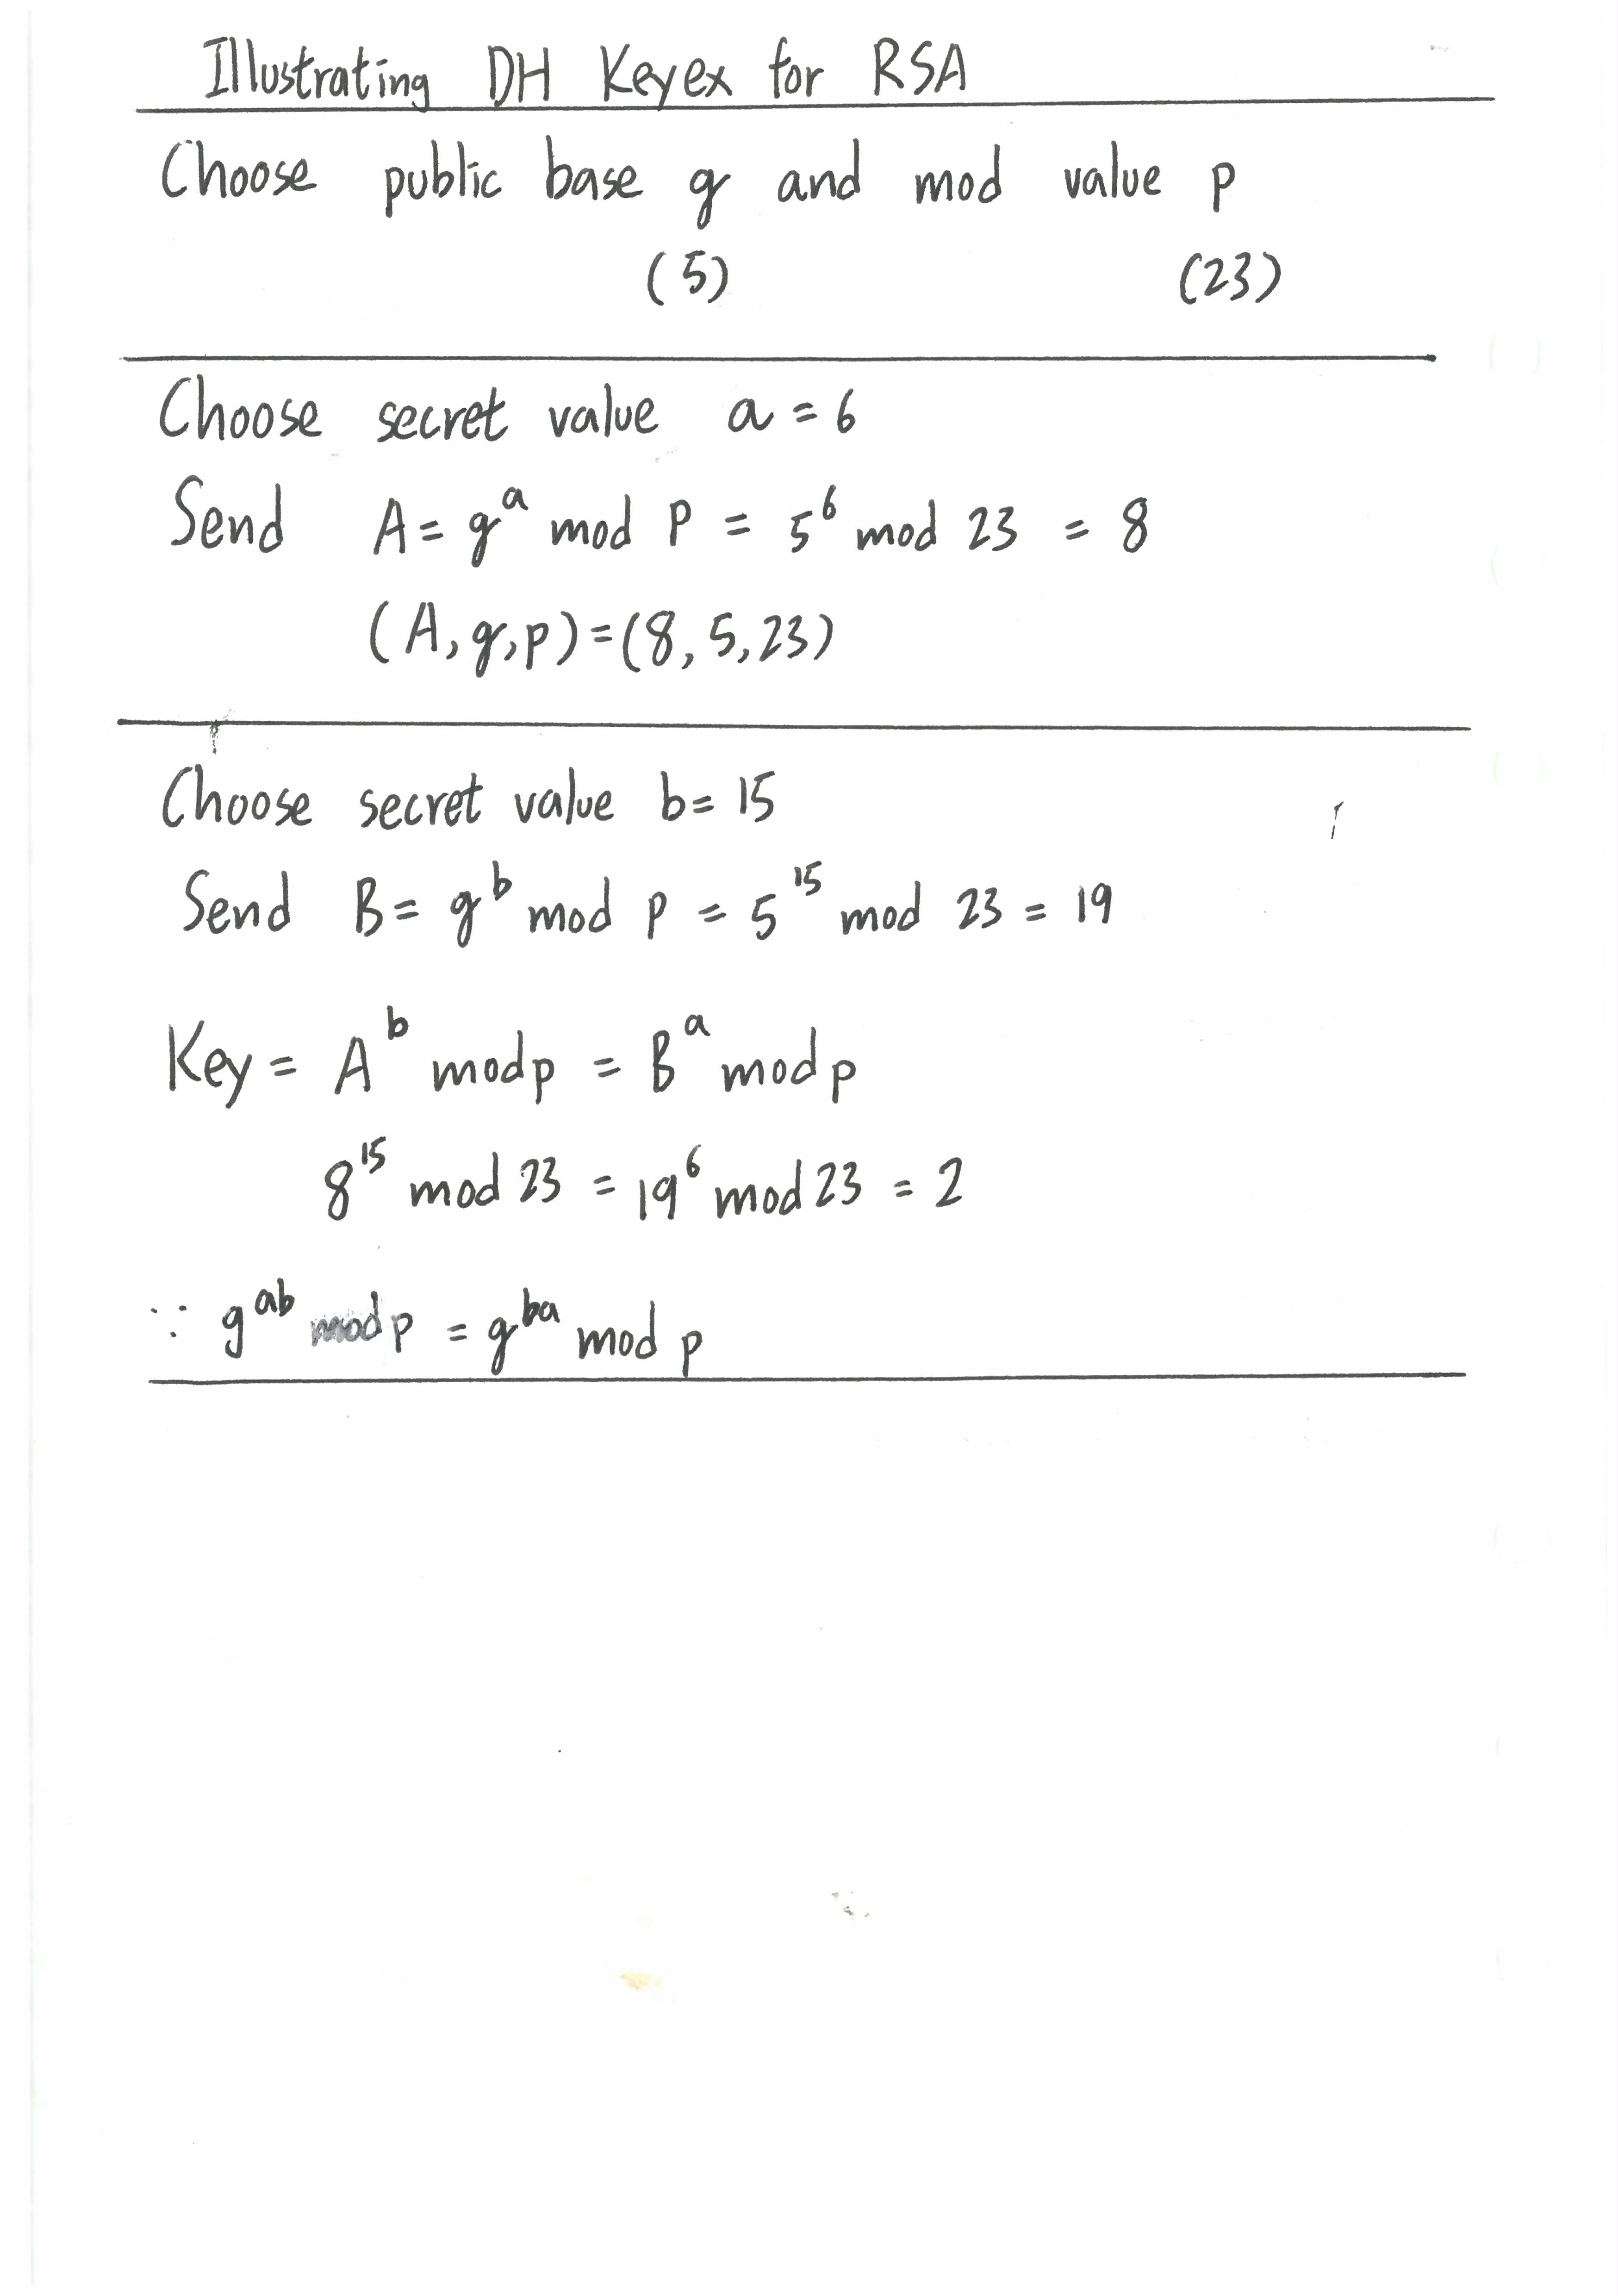 Illustrating DH Keyex for RSA
Choose public base g and mod value p
(5) (23)
Choose secret value a = 6
Send A = g^a mod p = 5^6 mod 23 = 8
(A, g, p) = (8, 5, 23)
Choose secret value b = 15
Send B = g^b mod p = 5^15 mod 23 = 19
Key = A^b mod p = B^a mod p
8^15 mod 23 = 19^6 mod 23 = 2
∵ g^ab mod p = g^ba mod p